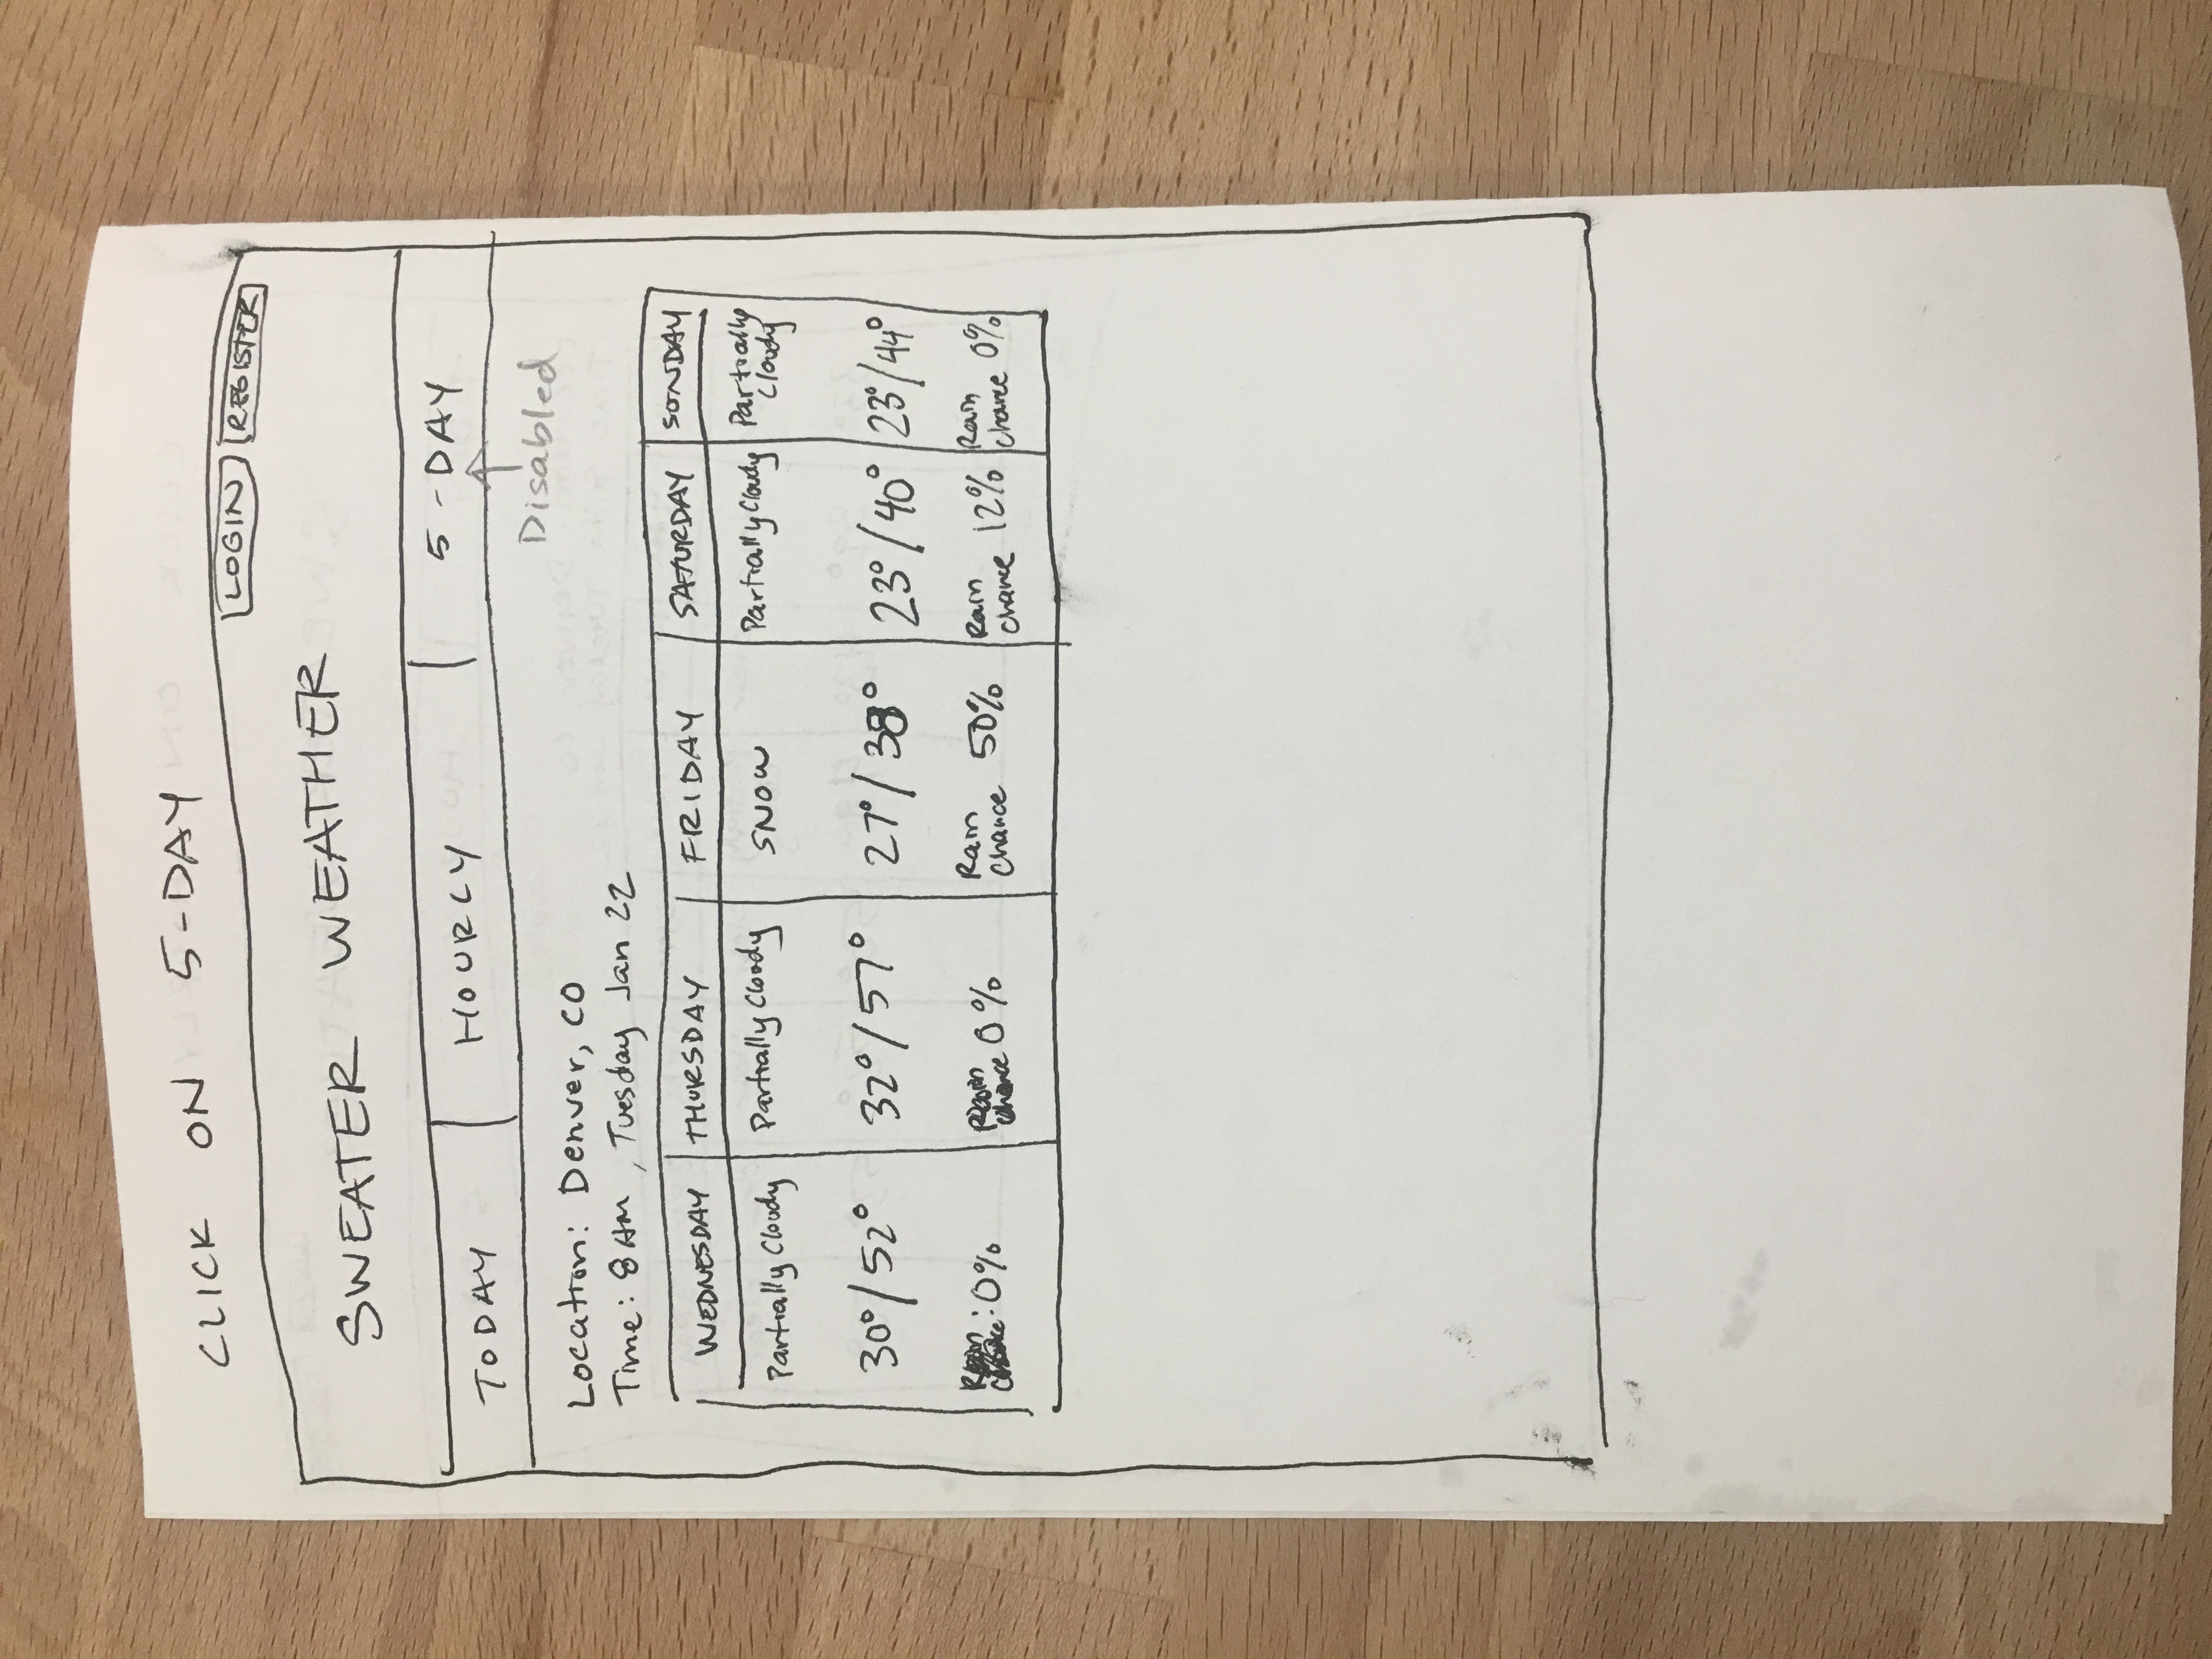 CLICK ON 5-DAY
LOGIN REGISTER
SWEATER WEATHER
TODAY HOURLY 5-DAY
Disabled
Location: Denver, CO
Time: 8AM, Tuesday Jan 22
WEDNESDAY THURSDAY FRIDAY SATURDAY SONDAY
Partially Cloudy Partially Cloudy SNOW Partially Cloudy Partially
Cloudy
30°/52° 32°/57° 27°/38° 23°/40° 23°/44°
Rain Rain Rain Rain Rain
chance: 0% chance 0% chance 50% chance 12% chance 0%